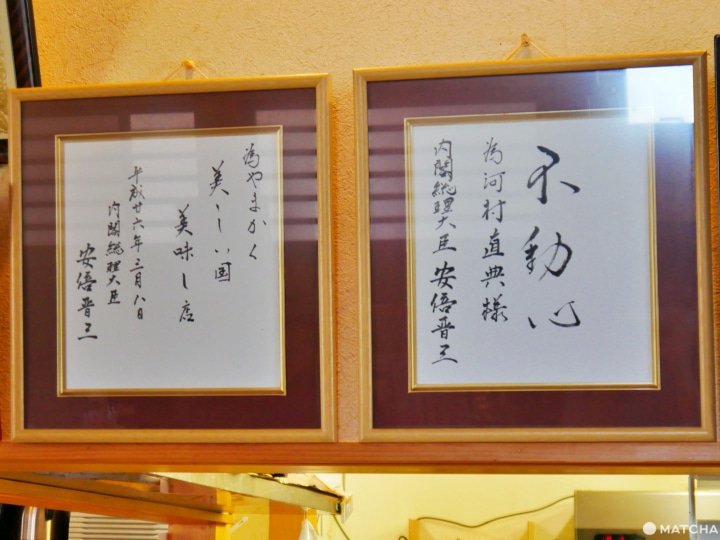 為やまかく
美しい国
美味し店
平成廿六年三月八日
内閣総理大臣
安倍晋三
不動心
為河村直典様
内閣総理大臣 安倍晋三
MATCHA